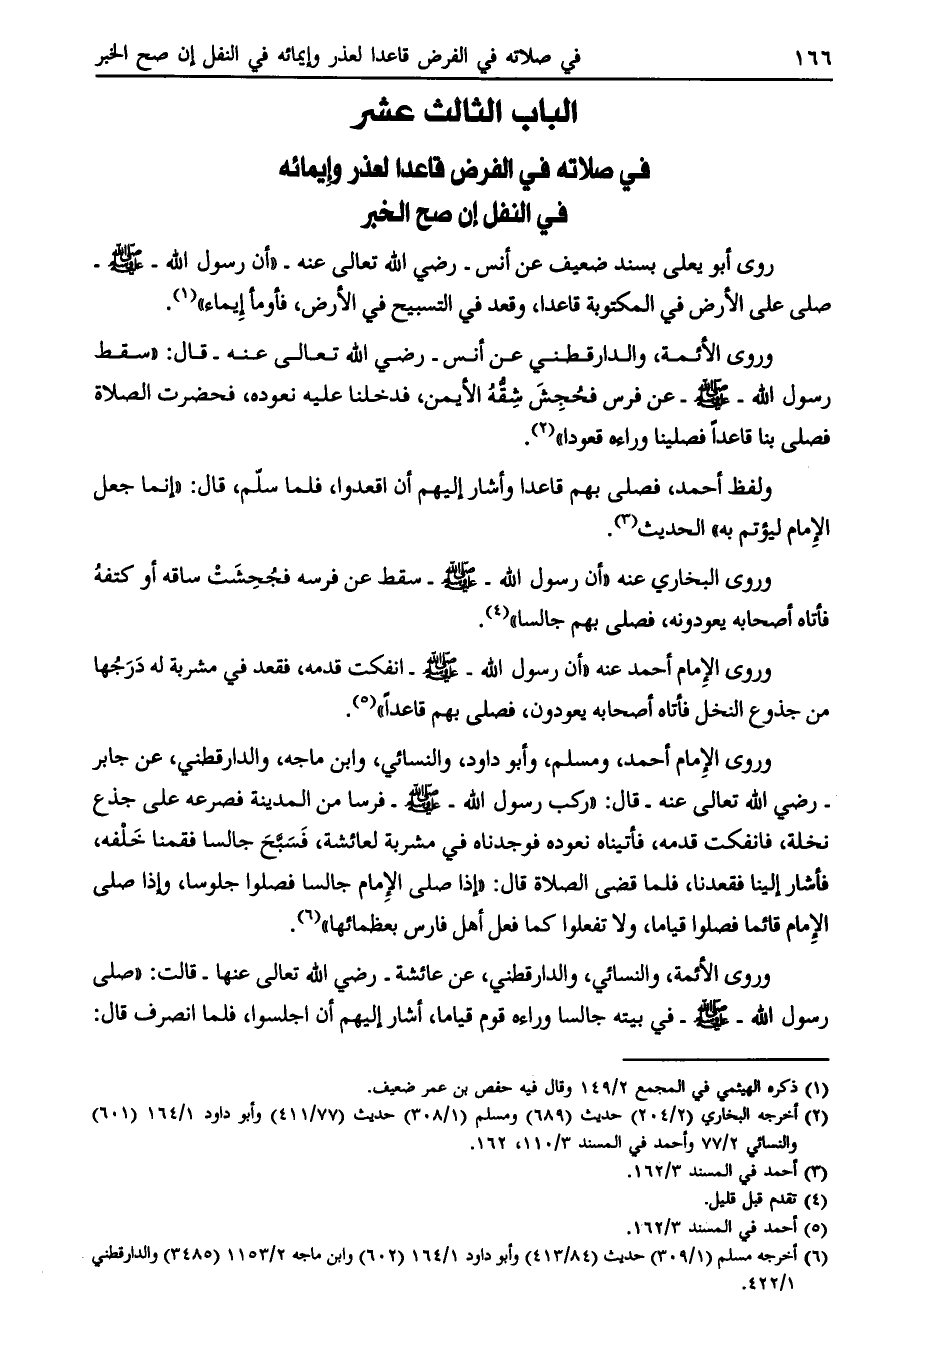 ١٦٦ في صلاته في الفرض قاعدا لعذر وإيمائه في النفل إن صح الخبر
الباب الثالث عشر
في صلاته في الفرض قاعدا لعذر وإيمائه
في النفل إن صح الخبر
روى أبو يعلى بسند ضعيف عن أنس ـ رضي الله تعالى عنه ـ «أن رسول الله ـ ﷺ ـ
صلى على الأرض في المكتوبة قاعدا، وقعد في التسبيح في الأرض، فأومأ إيماء»(١).
وروى الأئمة، والدارقطني عن أنس ـ رضي الله تعالى عنه ـ قال: «سقط
رسول الله ـ ﷺ ـ عن فرس فجُحِشَ شِقُّهُ الأيمن، فدخلنا عليه نعوده، فحضرت الصلاة
فصلى بنا قاعداً فصلينا وراءه قعودا»(٢).
ولفظ أحمد، فصلى بهم قاعدا وأشار إليهم أن اقعدوا، فلما سلّم، قال: «إنما جعل
الإمام ليؤتم به» الحديث(٣).
وروى البخاري عنه «أن رسول الله ـ ﷺ ـ سقط عن فرسه فجُحِشَتْ ساقه أو كتفهُ
فأتاه أصحابه يعودونه، فصلى بهم جالسا»(٤).
وروى الإمام أحمد عنه «أن رسول الله ـ ﷺ ـ انفكت قدمه، فقعد في مشربة له دَرَجُها
من جذوع النخل فأتاه أصحابه يعودون، فصلى بهم قاعداً»(٥).
وروى الإمام أحمد، ومسلم، وأبو داود، والنسائي، وابن ماجه، والدارقطني، عن جابر
ـ رضي الله تعالى عنه ـ قال: «ركب رسول الله ـ ﷺ ـ فرسا من المدينة فصرعه على جذع
نخلة، فانفكت قدمه، فأتيناه نعوده فوجدناه في مشربة لعائشة، فَسَبَّحَ جالسا فقمنا خَلْفه،
فأشار إلينا فقعدنا، فلما قضى الصلاة قال: «إذا صلى الإمام جالسا فصلوا جلوسا، وإذا صلى
الإمام قائما فصلوا قياما، ولا تفعلوا كما فعل أهل فارس بعظمائها»(٦).
وروى الأئمة، والنسائي، والدارقطني، عن عائشة ـ رضي الله تعالى عنها ـ قالت: «صلى
رسول الله ـ ﷺ ـ في بيته جالسا وراءه قوم قياما، أشار إليهم أن اجلسوا، فلما انصرف قال:
(١) ذكره الهيثمي في المجمع ١٤٩/٢ وقال فيه حفص بن عمر ضعيف.
(٢) أخرجه البخاري (٢٠٤/٢) حديث (٦٨٩) ومسلم (٣٠٨/١) حديث (٤١١/٧٧) وأبو داود ١٦٤/١ (٦٠١)
والنسائي ٧٧/٢ وأحمد في المسند ١١٠/٣، ١٦٢.
(٣) أحمد في المسند ١٦٢/٣.
(٤) تقدم قبل قليل.
(٥) أحمد في المسند ١٦٢/٣.
(٦) أخرجه مسلم (٣٠٩/١) حديث (٤١٣/٨٤) وأبو داود ١٦٤/١ (٦٠٢) وابن ماجه ١١٥٣/٢ (٣٤٨٥) والدارقطني
٤٢٢/١.